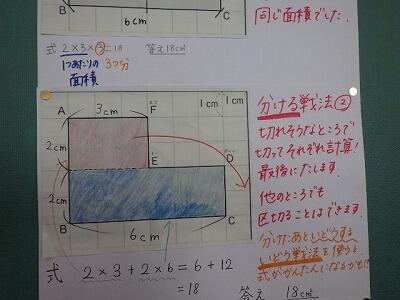 B
C
6cm
同じ面積でした。
式 2×3×③=18 答え18cm²
1つあたりの
面積
3つ分
A
3cm
F
1cm
1cm
2cm
E
D
2cm
B
C
6cm
式 2×3+2×6=6+12
=18
答え 18cm²
分ける戦法②
切れそうなところで
切ってそれぞれ計算!
最後にたします。
他のところでも
区切ることはできます。
分けたあといどうする
いどう戦法を使うと
式がかんたんになるかも!?